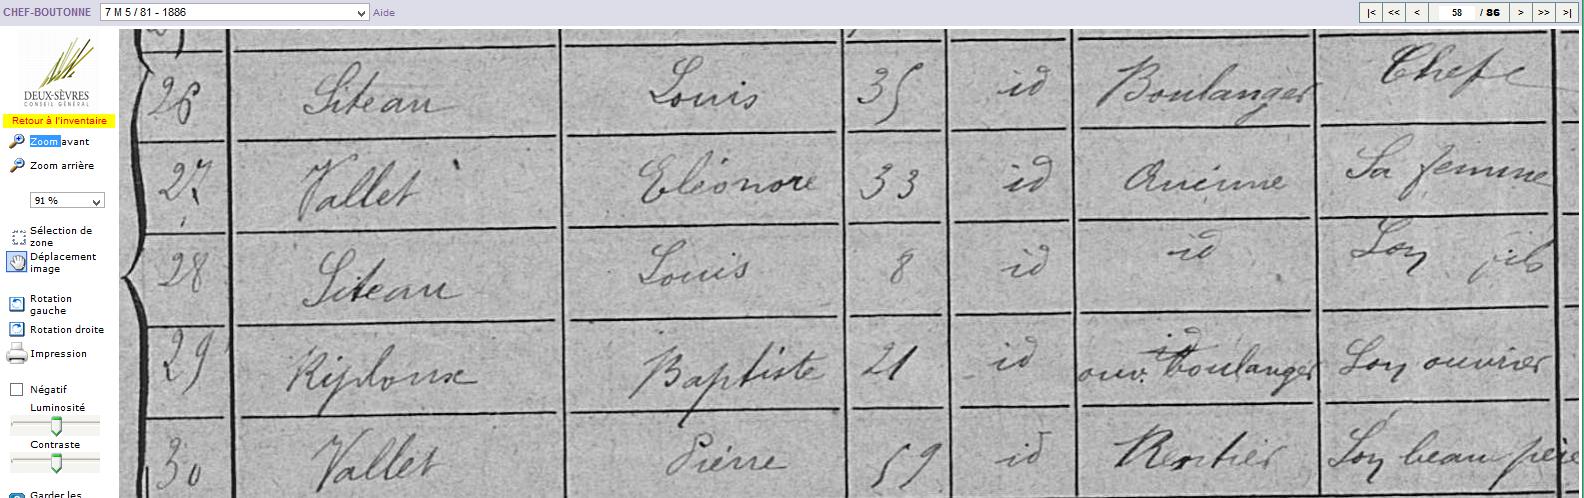 CHEF-BOUTONNE 7 M 5 / 81 - 1886 Aide |< << < 58 / 86 > >> >|
DEUX-SÈVRES
CONSEIL GÉNÉRAL
Retour à l'inventaire
Zoom avant
Zoom arrière
91 %
Sélection de
zone
Déplacement
image
Rotation
gauche
Rotation droite
Impression
Négatif
Luminosité
Contraste
Garder les
26 Siteau Louis 35 id Boulanger Chef
27 Vallet Eléonore 33 id Aucune Sa femme
28 Siteau Louis 8 id id Son fils
29 Baptiste 21 id ouv. Boulanger Son ouvrier
30 Vallet Pierre 59 id Rentier Son beau père